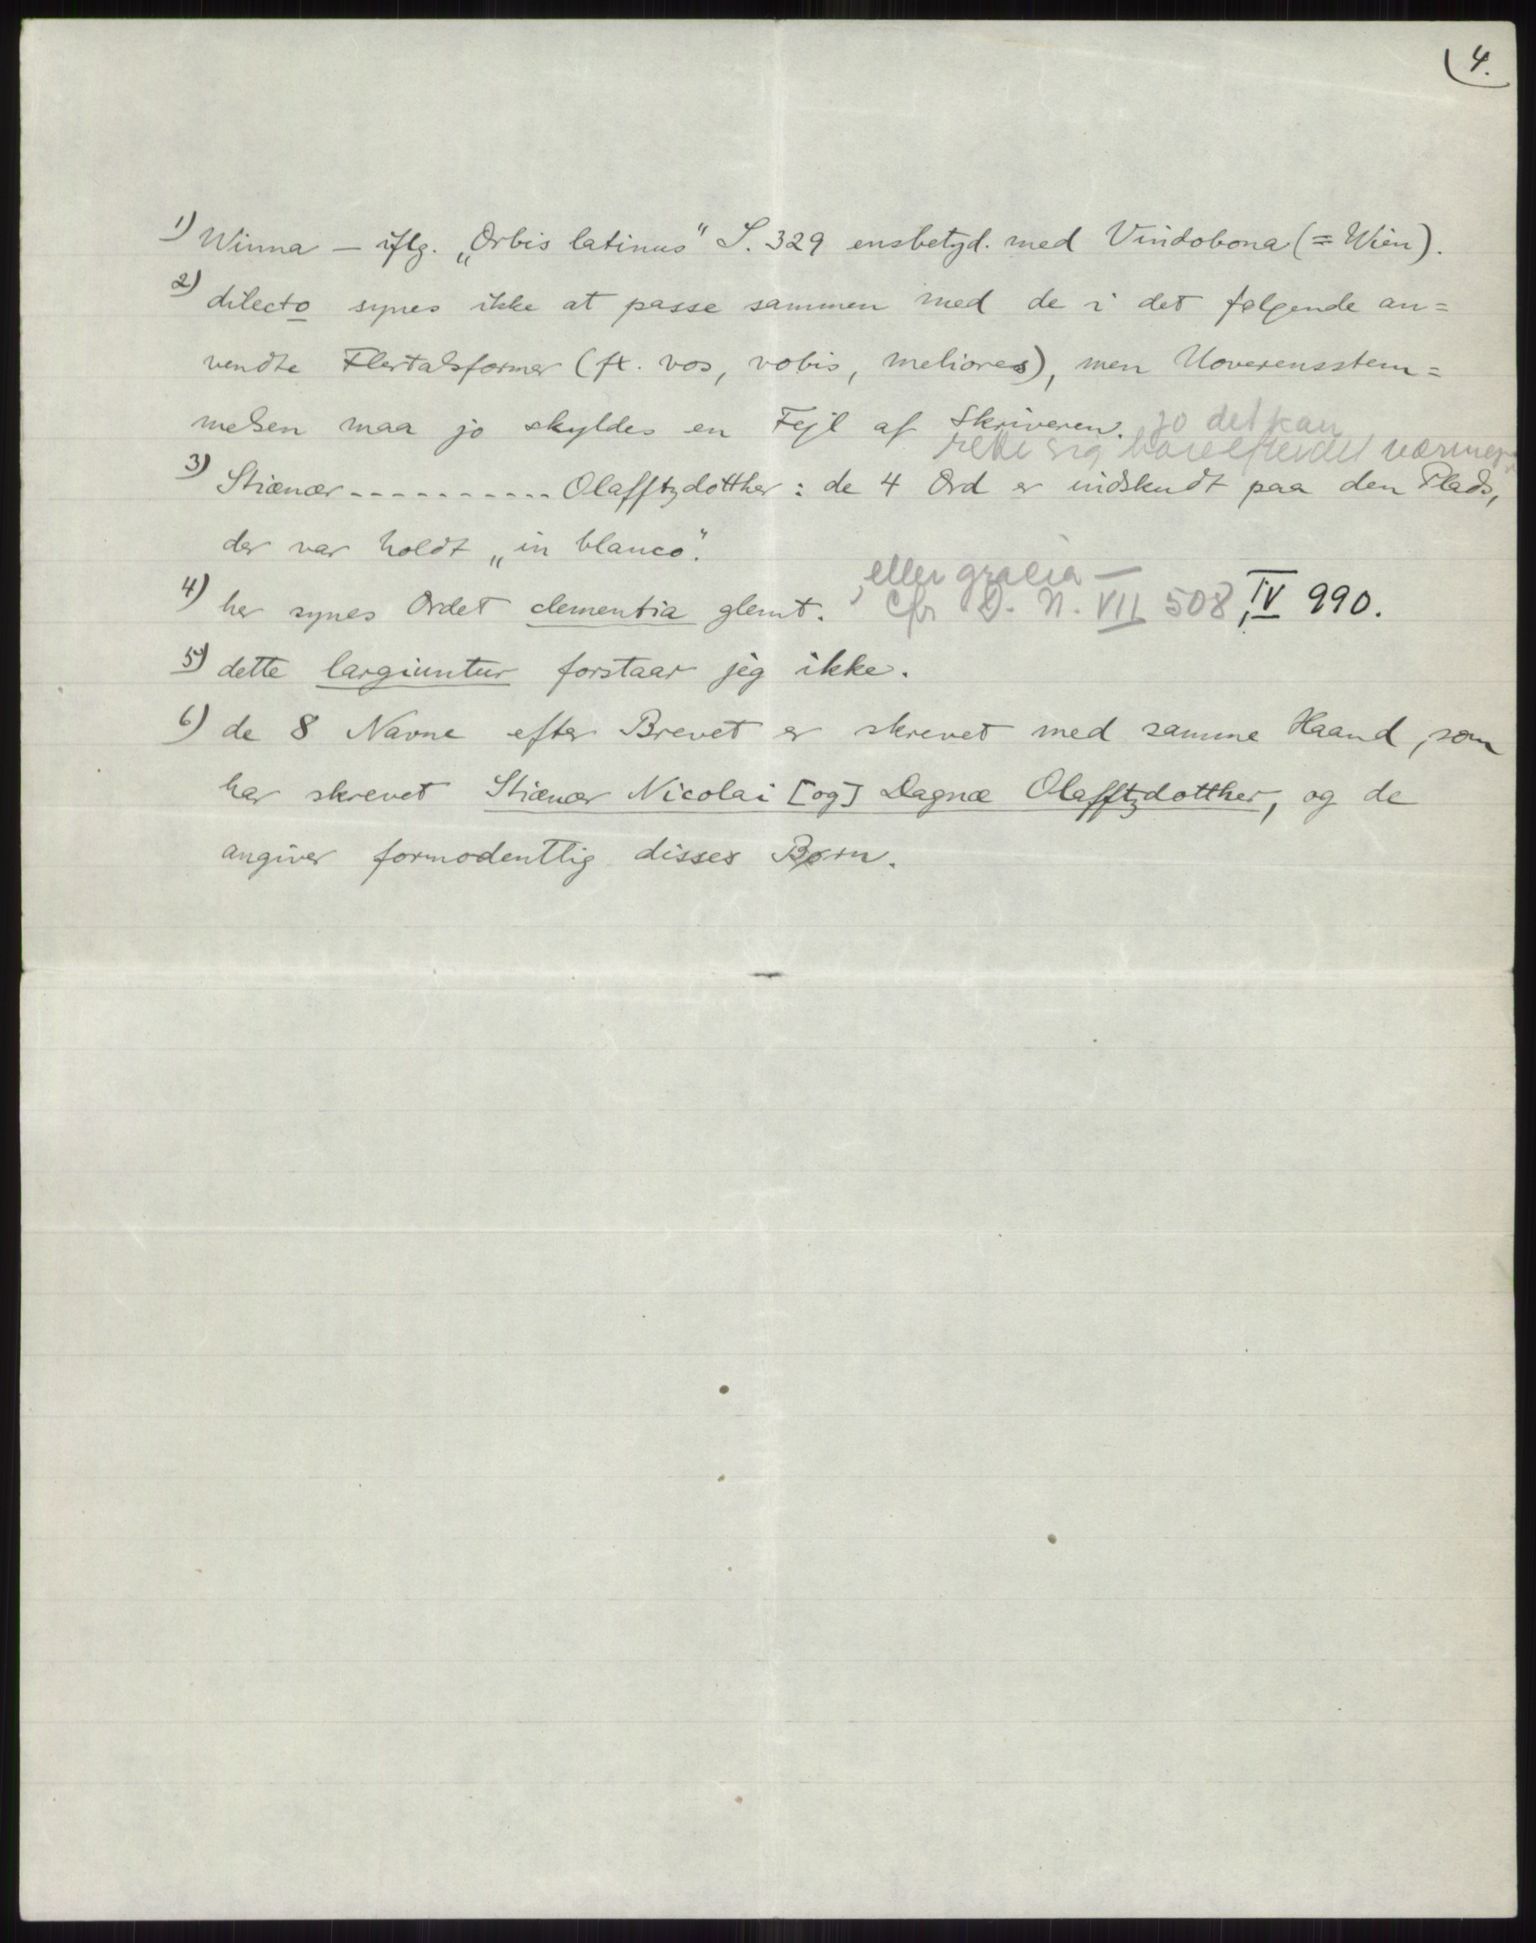 4.
1) Winna – iflg. „Orbis latinus" S. 329 ensbetyd. med Vindobona (= Wien).
2) dilecto synes ikke at passe sammen med de i det følgende an=
vendte Flertalsformer (fx. vos, vobis, meliores), men Uoverensstem=
melsen maa jo skyldes en Fejl af Skriveren. jo det kan
rette sig
3) Stiænær - - - - - - - - - - Olafftzdotther : de 4 Ord er indskudt paa den Plads,
der var holdt „in blanco".
eller gracia —
4) her synes Ordet clementia glemt. cfr D. N. VII 508, IV 990.
5) dette largiuntur forstaar jeg ikke.
6) de 8 Navne efter Brevet er skrevet med samme Haand, som
har skrevet Stiænær Nicolai [og] Dagnæ Olafftzdotther, og de
angiver formodentlig disses Børn.